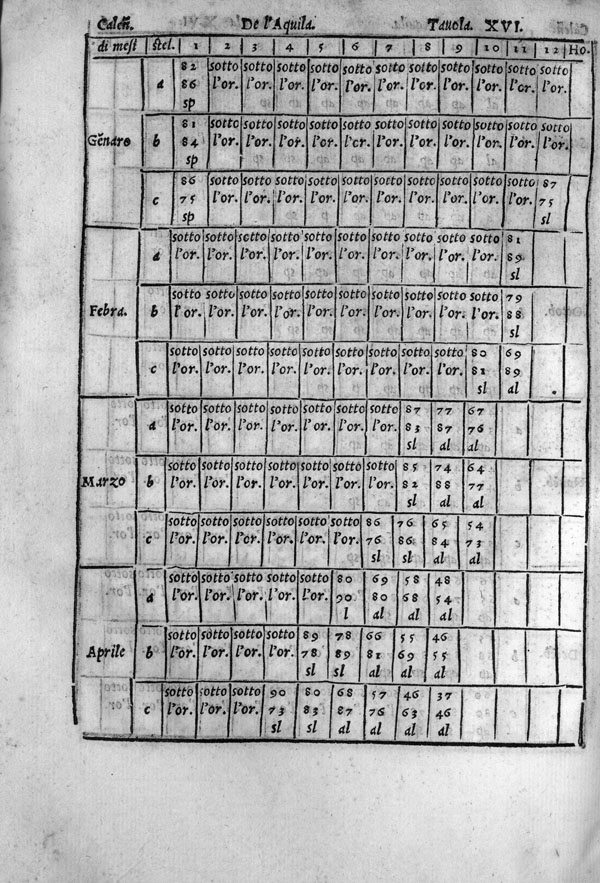 Caleñ. De l'Aquila. Tavola. XVI.
di mesi stel. 1 2 3 4 5 6 7 8 9 10 11 12 Ho.
82 sotto sotto sotto sotto sotto sotto sotto sotto sotto sotto sotto
a 86 l'or. l'or. l'or. l'or. l'or. l'or. l'or. l'or. l'or. l'or. l'or.
sp
81 sotto sotto sotto sotto sotto sotto sotto sotto sotto sotto sotto
Gẽnaro b 84 l'or. l'or. l'or. l'or. l'or. l'or. l'or. l'or. l'or. l'or. l'or.
sp
86 sotto sotto sotto sotto sotto sotto sotto sotto sotto sotto 87
c 75 l'or. l'or. l'or. l'or. l'or. l'or. l'or. l'or. l'or. l'or. 75
sp sl
sotto sotto sotto sotto sotto sotto sotto sotto sotto sotto 81
a l'or. l'or. l'or. l'or. l'or. l'or. l'or. l'or. l'or. l'or. 89
sl
sotto sotto sotto sotto sotto sotto sotto sotto sotto sotto 79
Febra. b l'or. l'or. l'or. l'or. l'or. l'or. l'or. l'or. l'or. l'or. 88
sl
sotto sotto sotto sotto sotto sotto sotto sotto sotto 80 69
c l'or. l'or. l'or. l'or. l'or. l'or. l'or. l'or. l'or. 81 89
sl al
sotto sotto sotto sotto sotto sotto sotto 87 77 67
a l'or. l'or. l'or. l'or. l'or. l'or. l'or. 83 87 76
sl al al
sotto sotto sotto sotto sotto sotto sotto 85 74 64
Marzo b l'or. l'or. l'or. l'or. l'or. l'or. l'or. 82 88 77
sl al al
sotto sotto sotto sotto sotto sotto 86 76 65 54
c l'or. l'or. l'or. l'or. l'or. l'or. 76 86 84 73
sl sl al al
sotto sotto sotto sotto sotto 80 69 58 48
a l'or. l'or. l'or. l'or. l'or. 90 80 68 54
l al al al
sotto sotto sotto sotto 89 78 66 55 46
Aprile b l'or. l'or. l'or. l'or. 78 89 81 69 55
sl sl al al al
sotto sotto sotto 90 80 68 57 46 37
c l'or. l'or. l'or. 73 83 87 76 63 46
sl sl al al al al